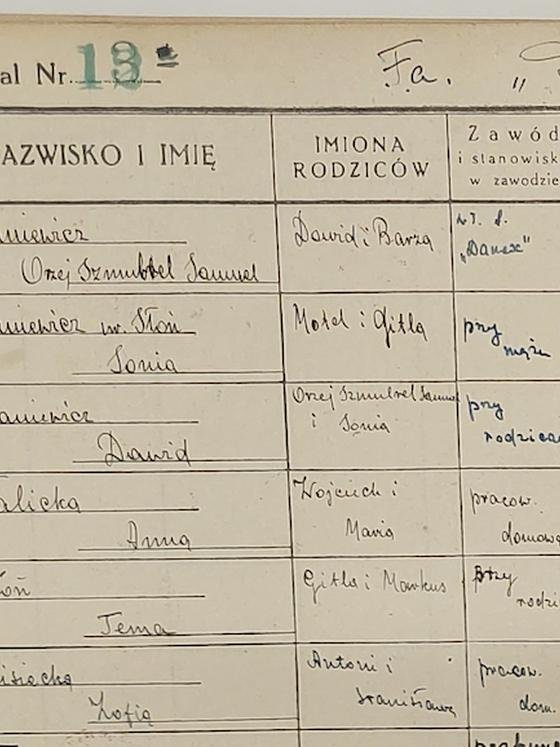 al Nr. 13ª Fa. „
AZWISKO I IMIĘ
IMIONA
RODZICÓW
Zawód
i stanowisk
w zawodzie
niewicz
Orzej Szmulxel Samuel
Dawid i Barza
wł. f.
„Danex"
niewicz ur. Słoń
Sonia
Motel i Gitla
przy
mężu
aniewicz
Dawid
Orzej Szmulxel Samuel
i Sonia
przy
rodzica
alicka
Anna
Wojciech i
Maria
pracow.
domowa
oń
Tema
Gitla i Markus
przy
rodzi
isiecka
Zofia
Antoni i
Stanisława
pracow.
dom.